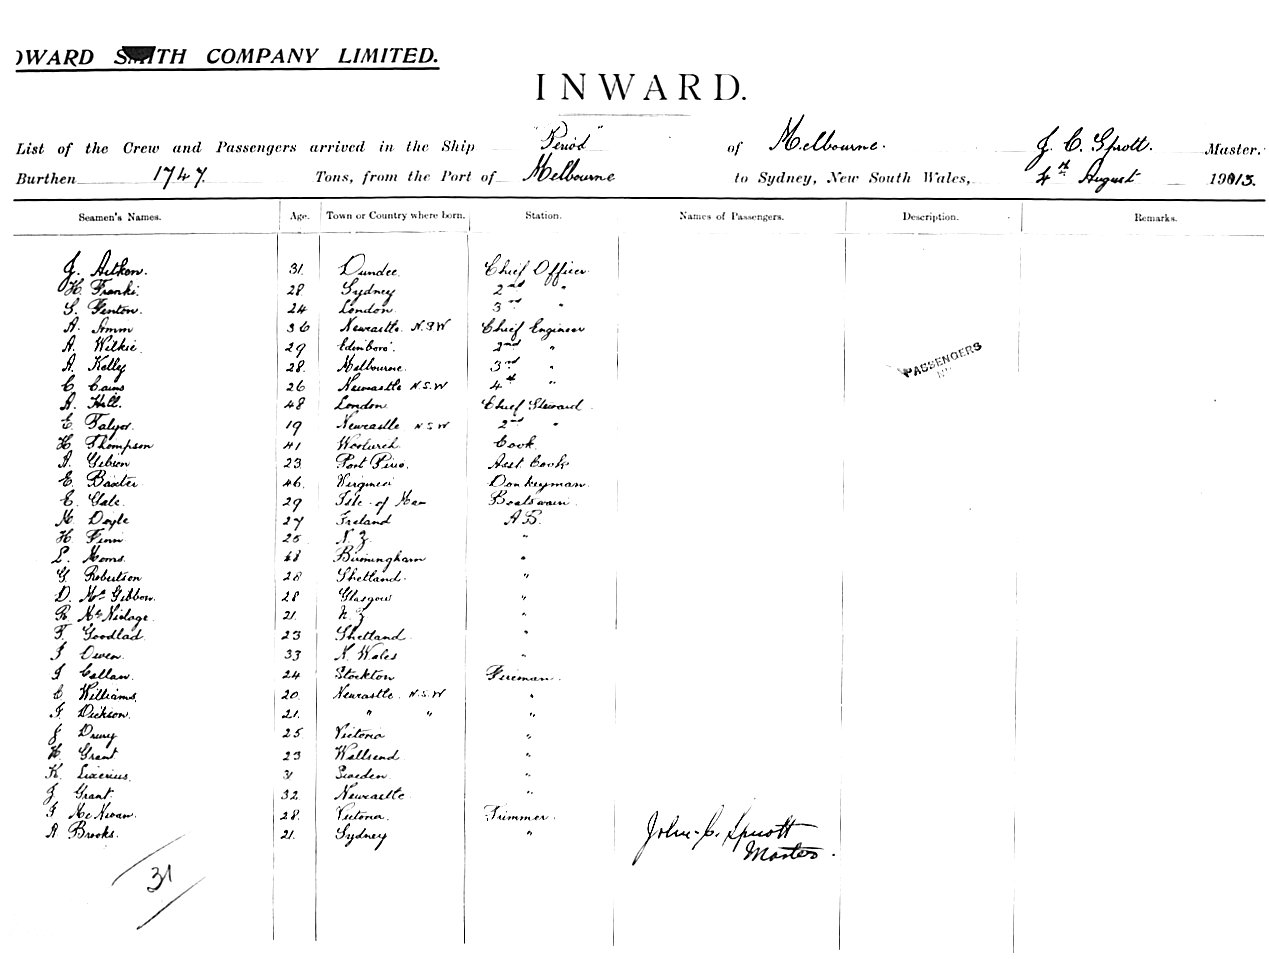 OWARD SMITH COMPANY LIMITED.
INWARD.
List of the Crew and Passengers arrived in the Ship "Period" of Melbourne. J. C. Sprott. Master.
Burthen 1747. Tons, from the Port of Melbourne to Sydney, New South Wales, 4th August 1913.
Seamen's Names. Age. Town or Country where born. Station. Names of Passengers. Description. Remarks.
J. Aitken. 31. Dundee. Chief Officer.
H. Franki. 28 Sydney 2nd "
S. Fenton. 24 London. 3rd "
A. Amm 36 Newcastle. N.S.W Chief Engineer
A. Wilkie. 29 Edinboro'. 2nd "
A. Kelly 28. Melbourne. 3rd "
C. Cains 26 Newcastle N.S.W 4th "
A. Hill. 48 London Chief Steward.
E. Talyor. 19 Newcastle N S W 2nd "
H. Thompson 41 Cook.
A. Gibson 23 Port Pirie. Asst Cook
E. Baxter 46. Donkeyman.
E. Gale. 29 Isle of Man Boatswain.
M. Doyle 27 Ireland A.B.
H. Finn 25 N.Z. "
L. 48 Birmingham "
G. Robertson 28 Shetland. "
D. McGibbon. 28 Glasgow "
R. 21. N.Z "
T. Goodlad. 23 Shetland "
J Owen. 33 N. Wales "
J Callan. 24 Stockton Fireman.
C. Williams. 20. Newcastle. N.S.W "
J. Dickson. 21. " " "
J Drury 25 Victoria "
H. Grant 23 Wallsend. "
K. 31 Sweden. "
J Grant. 32. Newcastle. "
J. 28. Victoria. Trimmer.
A Brooks. 21. Sydney "
PASSENGERS
John C. Sprott
Master.
31